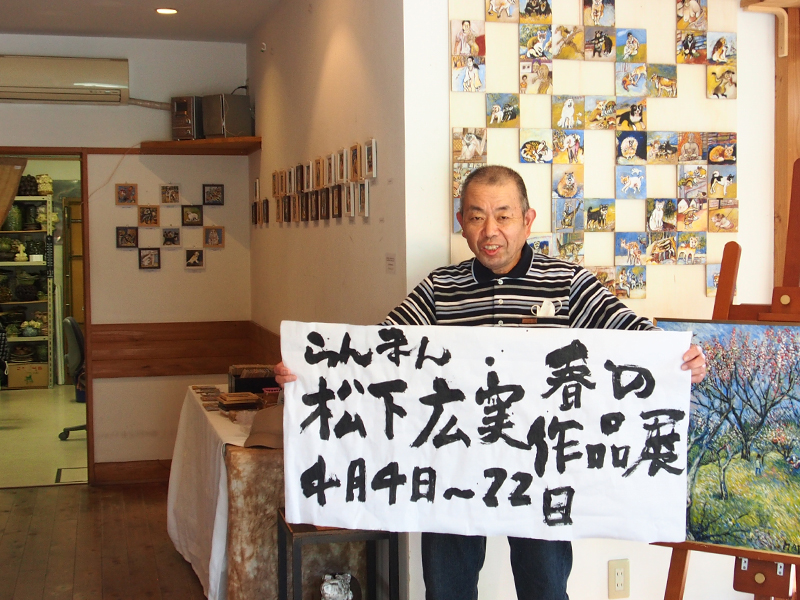 らんまん
松下広実 春の作品展
4月4日〜22日